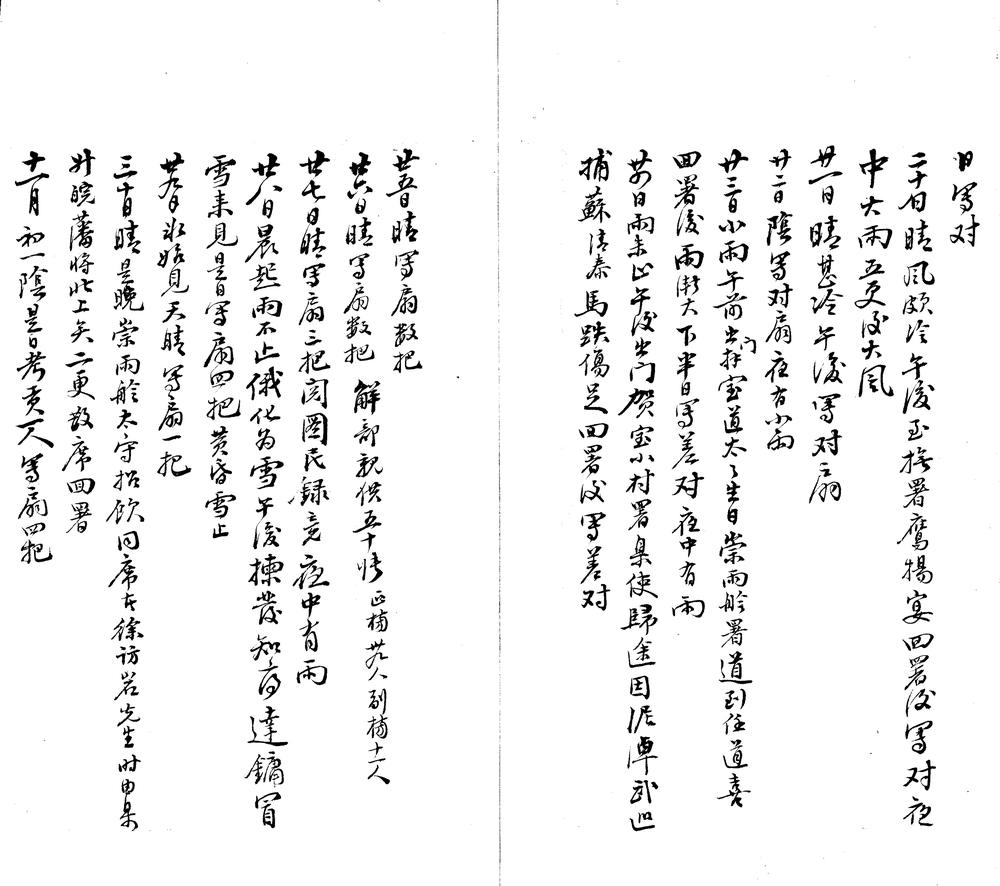 日写对
二十日晴风颇冷午後至撫署鹰揚宴回署後写对夜
中大雨五更後大風
廿一日晴甚冷午後写对扇
廿二日陰写对扇夜有小雨
廿三日小雨午前出门拜宝道太々生日崇雨舲署道到任道喜
回署後雨渐大下半日写差对夜中有雨
廿四日雨未止午後出门贺宝小村署臬使歸途因泥潭武巡
捕蘇清泰馬跌傷足回署後写差对
廿五日晴写扇数把
廿六日晴写扇数把 解部親供五十incl 正榜卅九人副榜十一人
廿七日晴写扇三把阅國民録竟夜中有雨
廿八日晨起雨不止俄化为雪午後揀發知府達鏞冒
雪来見是日写扇四把黄昏雪止
廿九日氷始見天晴写扇一把
三十日晴是晚崇雨舲太守招飲同席右徐访岩先生时由臬
升皖藩將北上矣二更散席回署
十一月初一陰是日考贡八人写扇四把